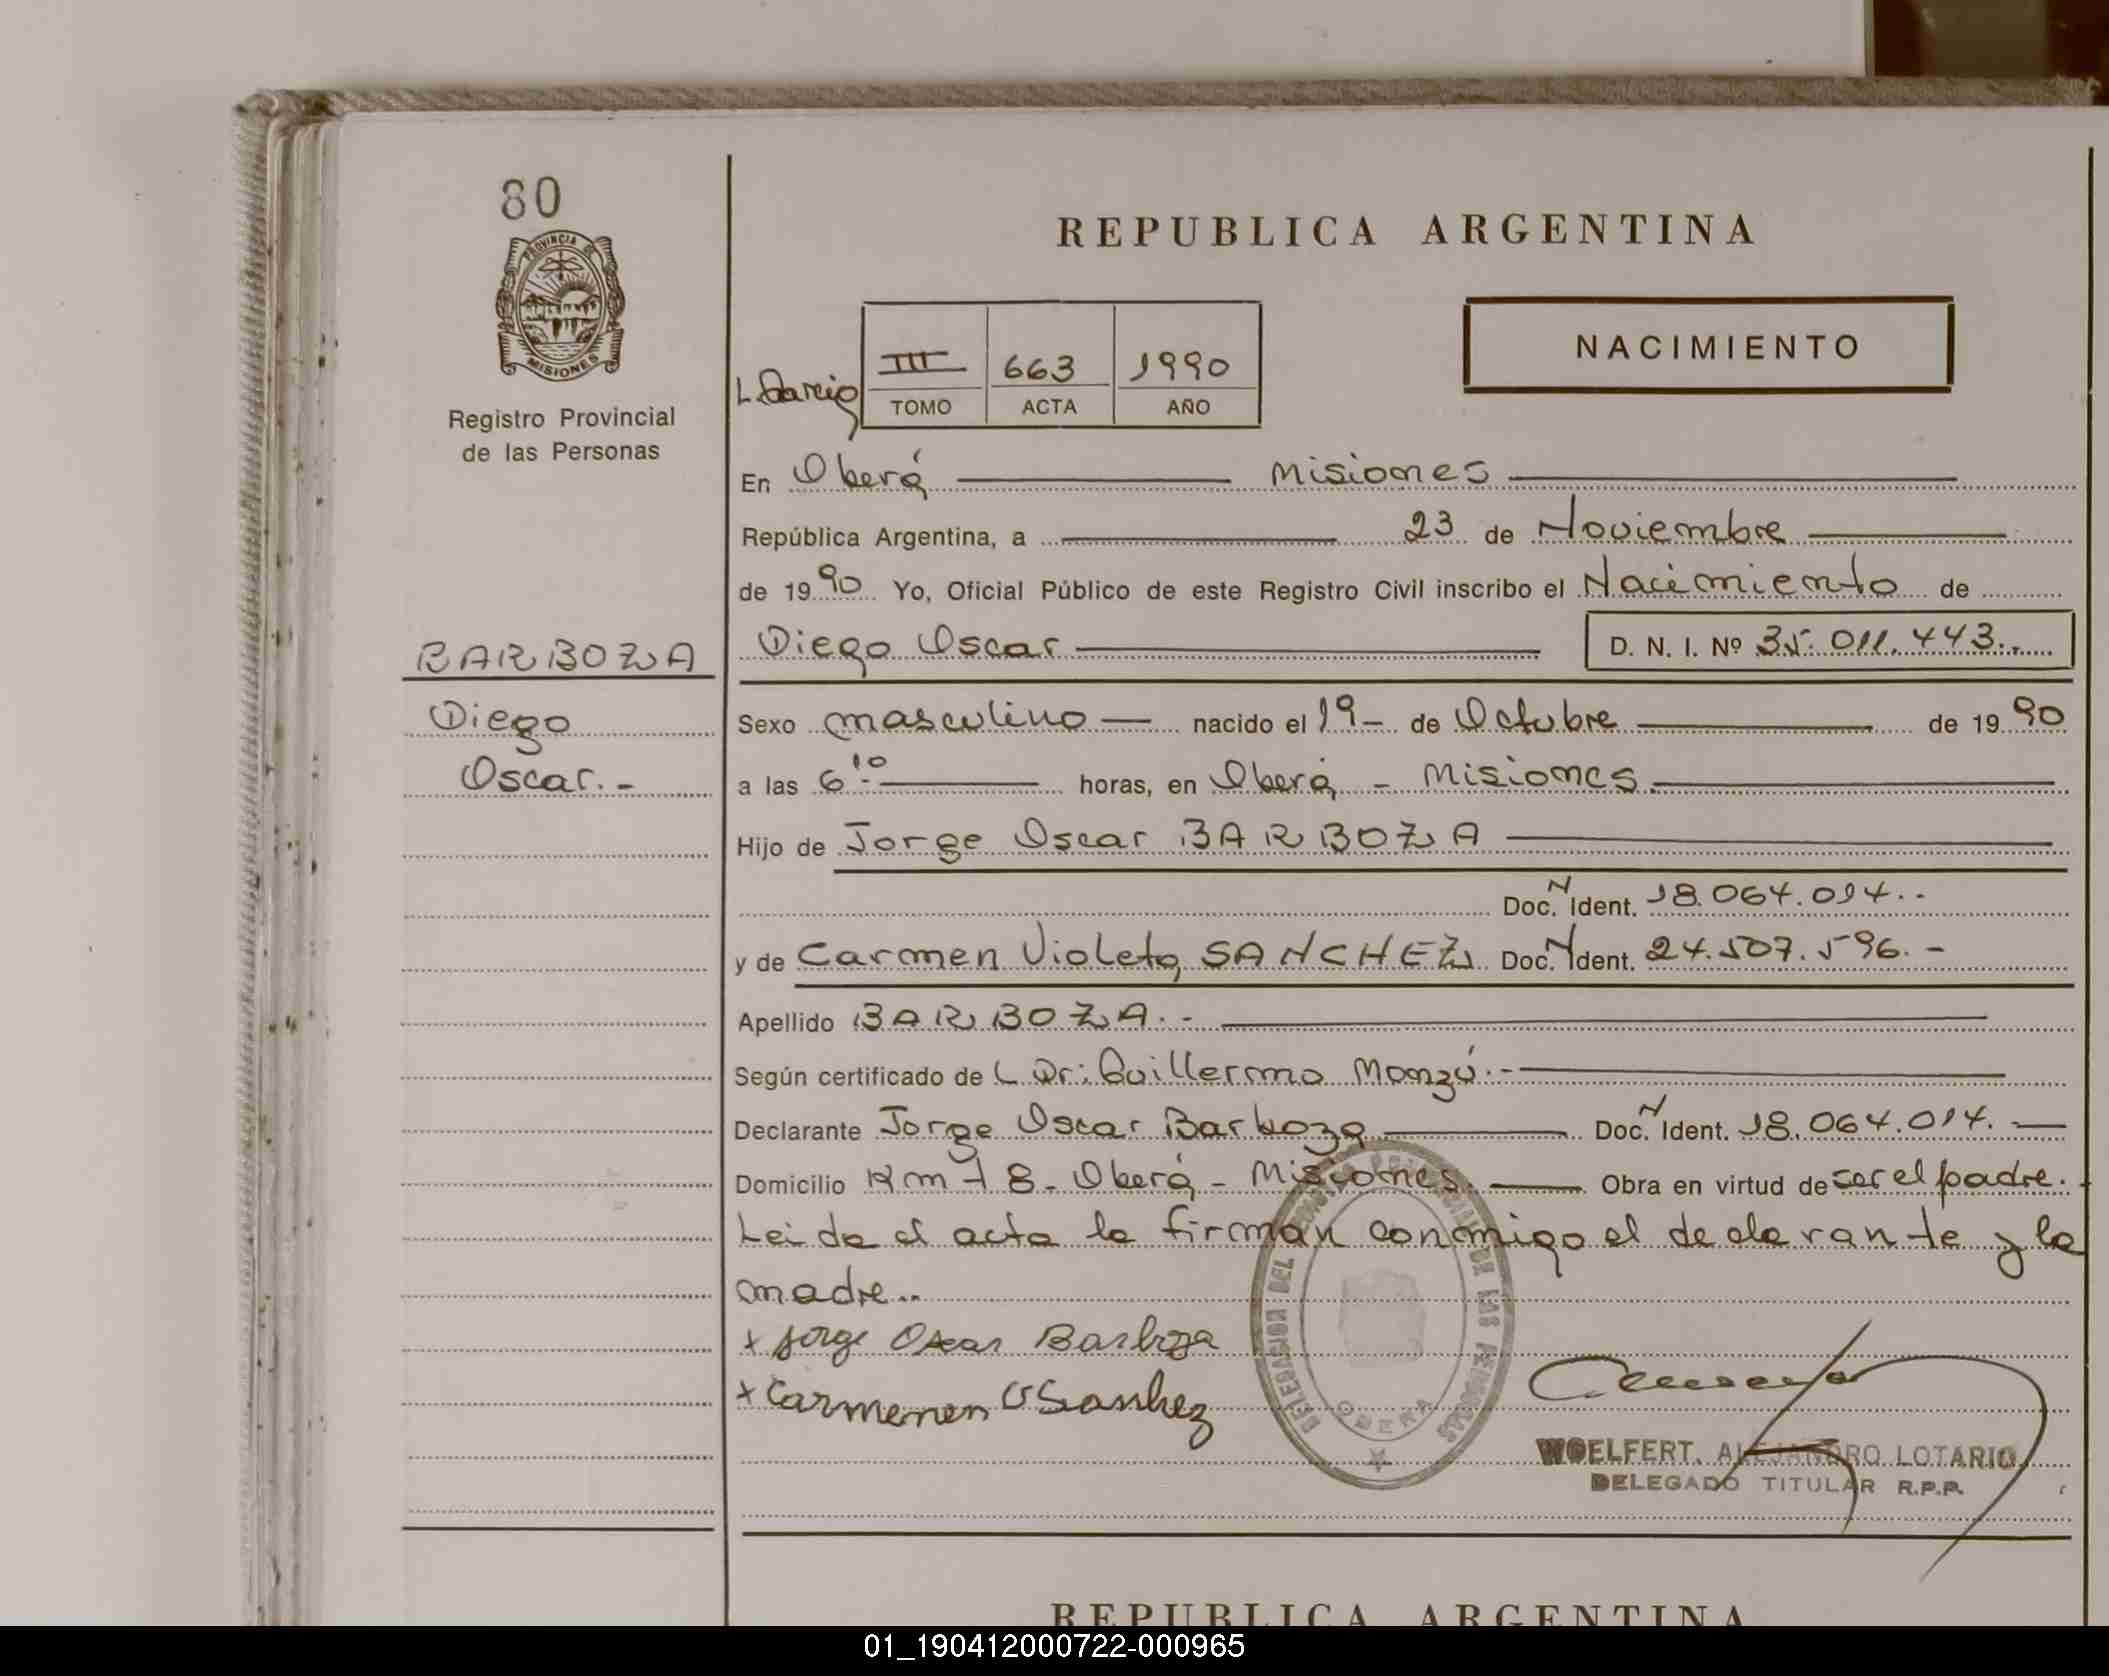 80
PROVINCIA DE
MISIONES
Registro Provincial
de las Personas
BARBOZA
Diego
Oscar.-
REPUBLICA ARGENTINA
NACIMIENTO
III 663 1990
TOMO ACTA AÑO
En Oberá Misiones
República Argentina, a 23 de Noviembre
de 1990 Yo, Oficial Público de este Registro Civil inscribo el Nacimiento de
Diego Oscar D. N. I. Nº 35.011.443.-
Sexo masculino — nacido el 19 - de Octubre de 1990
a las 6:10 horas, en Oberá - Misiones.
Hijo de Jorge Oscar BARBOZA
Doc. N Ident. 18.064.014.-
y de Carmen Violeta SANCHEZ Doc. N Ident. 24.507.596.-
Apellido BARBOZA.-
Según certificado de L Dr: Guillermo Monzú.-
Declarante Jorge Oscar Barboza Doc. N Ident. 18.064.014.—
Domicilio Km 8 - Oberá - Misiones. Obra en virtud de ser el padre.
Leida el acta la firman conmigo el declarante y la
madre..
x Jorge Oscar Barboza
x Carmenen V Sanhez
DELEGACION DEL REGISTRO PROVINCIAL DE LAS PERSONAS
OBERA
WOELFERT, ALEJANDRO LOTARIO
DELEGADO TITULAR R.P.P.
REPUBLICA ARGENTINA
01_190412000722-000965